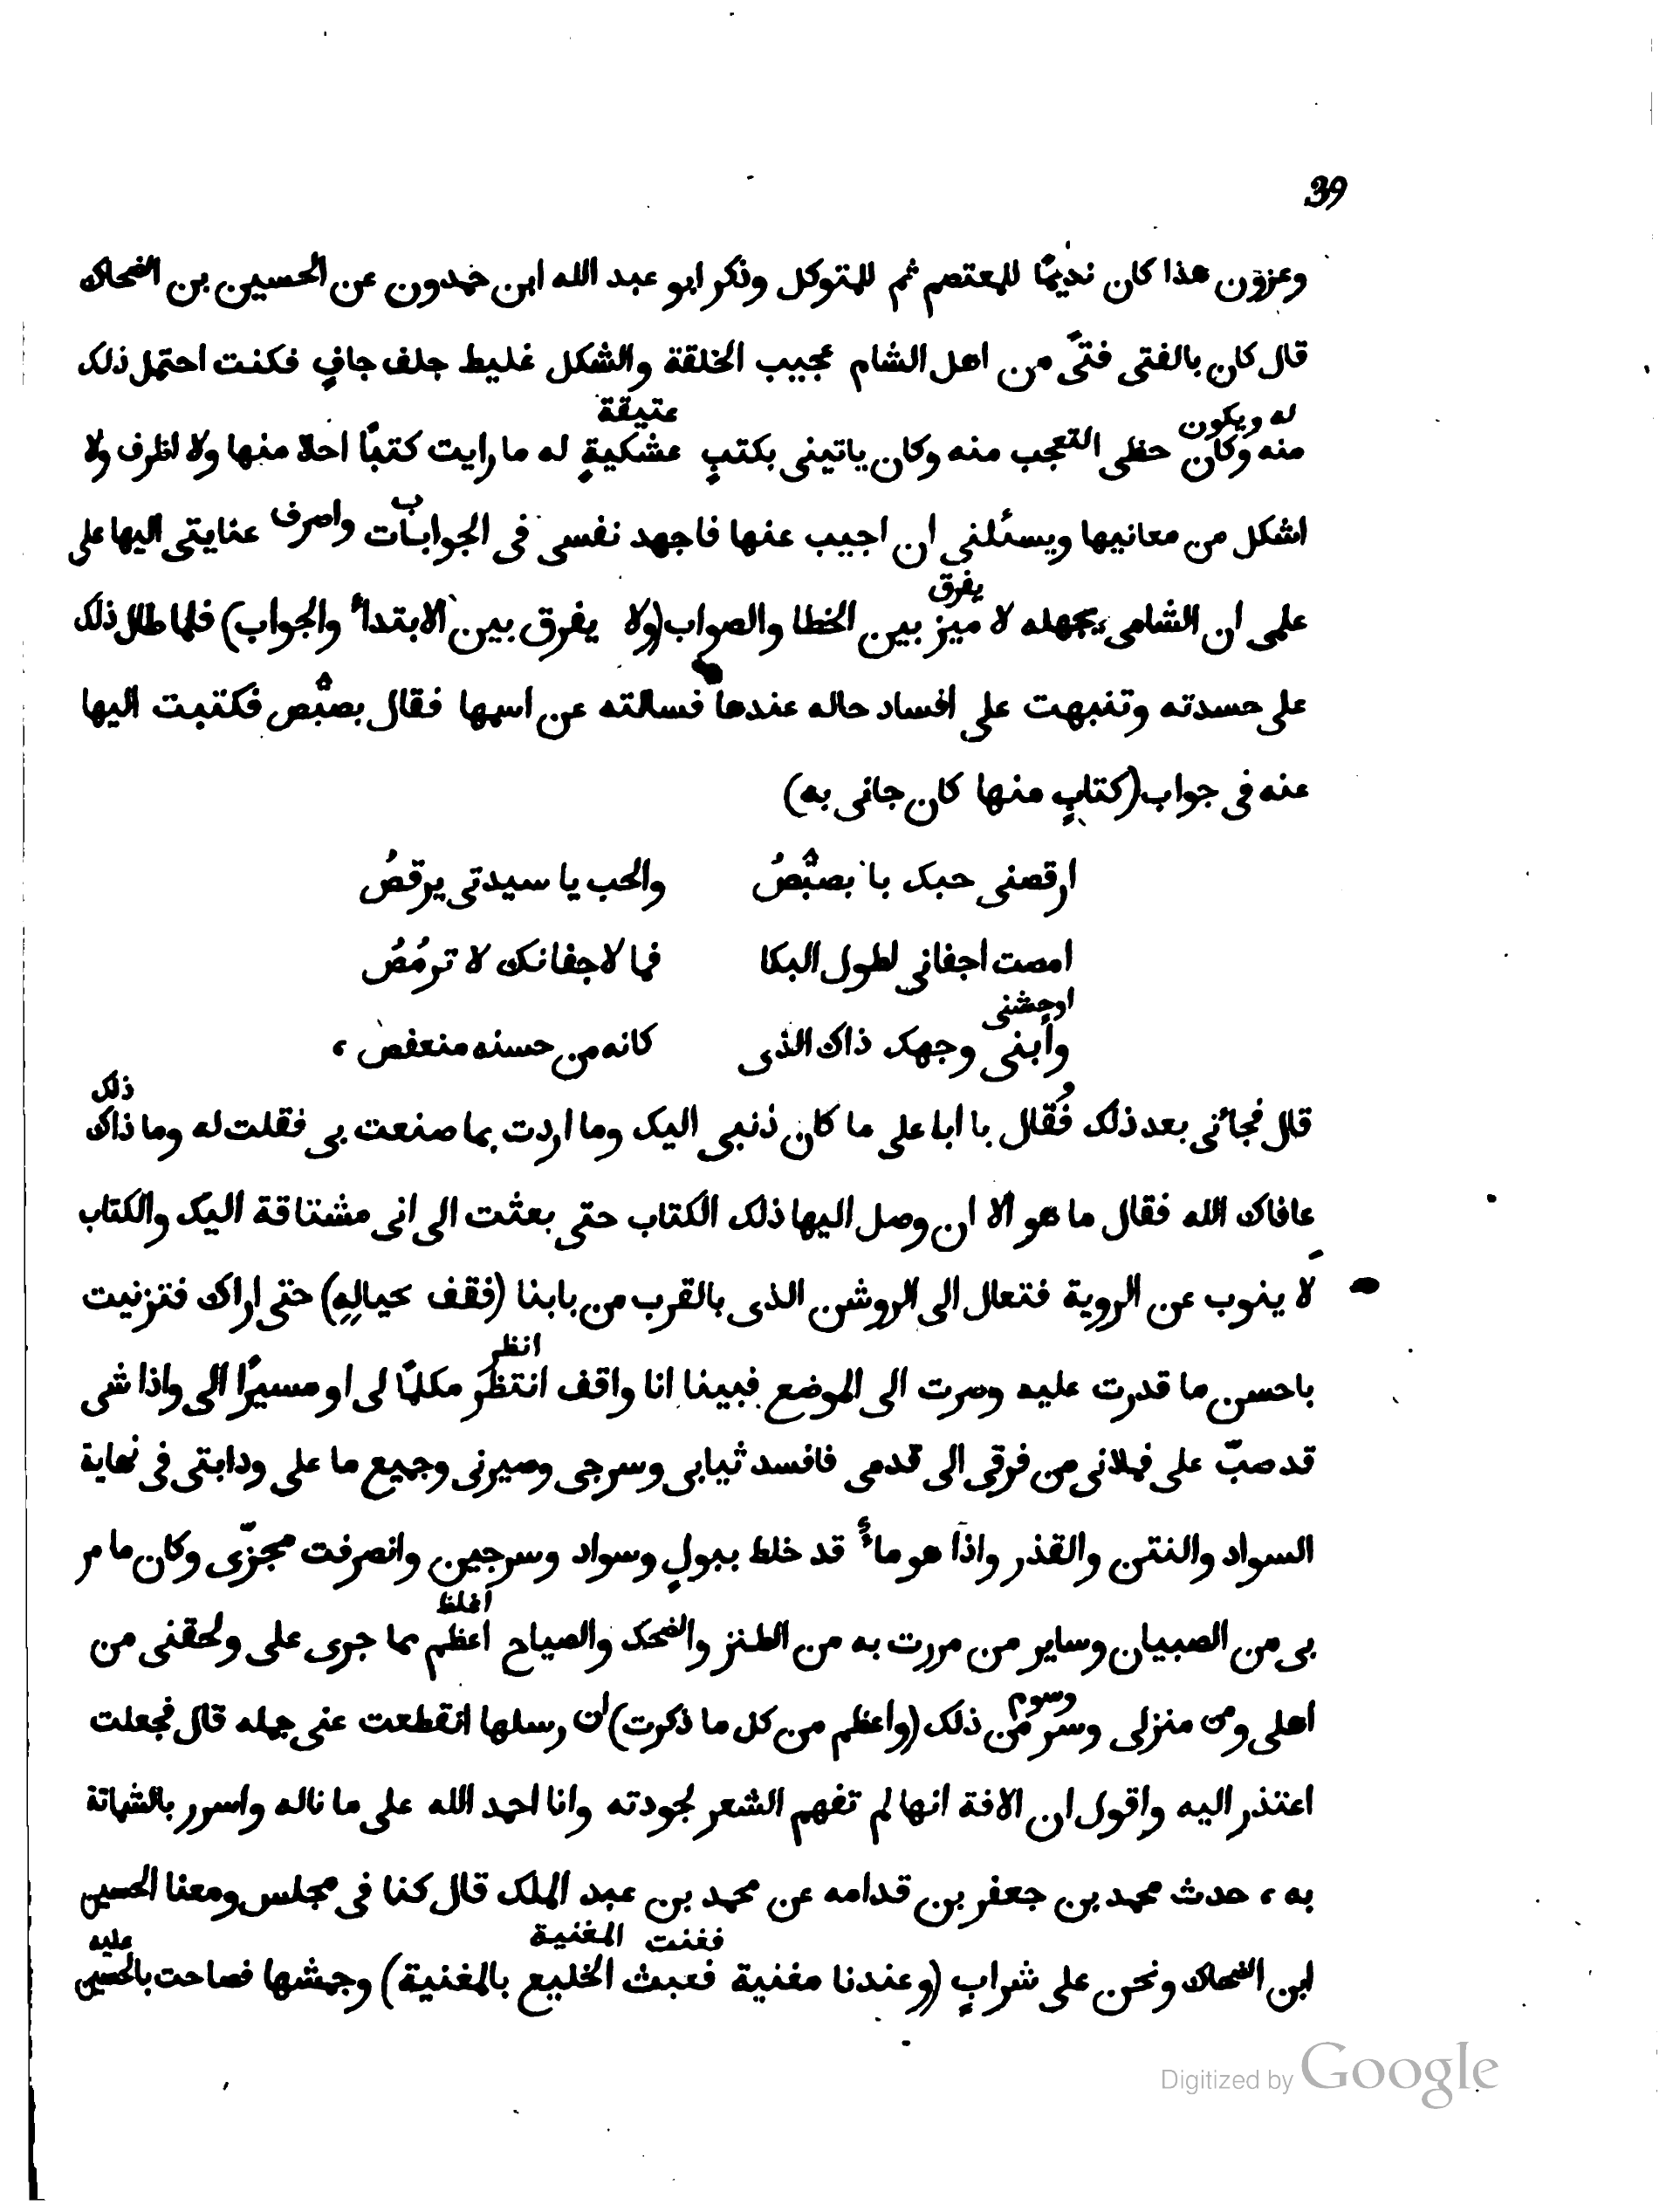 39
وعزون هذا كان نديمًا للمعتصم ثم للمتوكل وذكر ابو عبد الله ابن حمدون عن الحسين بن الضحاك
قال كان بالفتى فتًى من اهل الشام عجيب الخلقة والشكل غليط جلف جافٍ فكنت احتمل ذلك
له ويكون عتيقة
منه وكان حظى التعجب منه وكان ياتينى بكتبٍ عشكيةٍ له ما رايت كتبًا احلا منها ولا اظرف ولا
اشكل من معانيها ويسئلنى ان اجيب عنها فاجهد نفسى فى الجوابات واصرف عنايتى اليها على
يفرق
علمى ان الشامى بجهله لا ميز بين الخطا والصواب (ولا يفرق بين الابتداء والجواب) فلما طال ذلك
على حسدته وتنبهت على افساد حاله عندها فسالته عن اسمها فقال بصبص فكتبت اليها
عنه فى جواب (كتابٍ منها كان جانى به)
ارقصنى حبك با بصبصُ والحب يا سيدتى يرقصُ
امصت اجفانى لطول البكا فما لاجفانك لا ترمُصُ
اوحشنى
وأبنى وجهك ذاك الذى كانه من حسنه منعفص ،
ذلك
قال فجائنى بعد ذلك فقال با ابا على ما كان ذنبى اليك وما اردت بما صنعت بى فقلت له وما ذاك
عافاك الله فقال ما هو الا ان وصل اليها ذلك الكتاب حتى بعثت الى انى مشتاقة اليك والكتاب
لا ينوب عن الروية فتعال الى الروشن الذى بالقرب من بابنا (فقف بحيالهِ) حتى اراك فتزنيت
انظر
باحسن ما قدرت عليه وصرت الى الموضع فبينا انا واقف انتظر مكلمًا لى او مسيرًا الى واذا شى
قد صبّ على فملانى من فرقى الى قدمى فافسد ثيابى وسرجى وصيرنى وجميع ما على ودابتى فى نهاية
السواد والنتن والقذر واذا هو ماءٌ قد خلط ببولٍ وسواد وسرجين وانصرفت بخزّى وكان ما مر
اغلظ
بى من الصبيان وساير من مررت به من الطنز والضحك والصياح اعظم مما جرى على ولحقنى من
وسوم
اهلى ومن منزلى وسر من ذلك (واعظم من كل ما ذكرت) ان رسلها انقطعت عنى جمله قال فجعلت
اعتذر اليه واقول ان الافة انها لم تفهم الشعر لجودته وانا احمد الله على ما ناله واسرر بالشماتة
به ، حدث محمد بن جعفر بن قدامه عن محمد بن عبد الملك قال كنا فى مجلس ومعنا الحسين
فغنت المغنية عليه
ابن الضحاك ونحن على شرابٍ (وعندنا مغنية فعبث الخليع بالمغنية) وجمشها فصاحت بالحسين
Digitized by Google